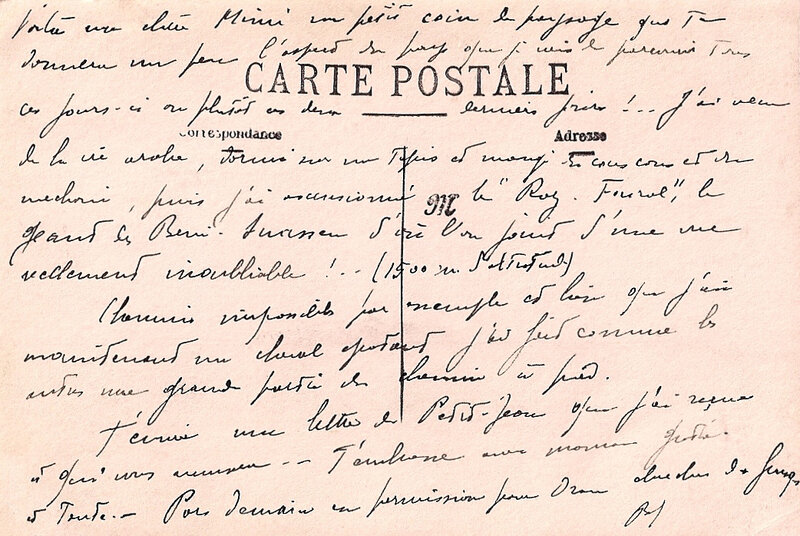 Voilà ma chère Mimi un petit coin de paysage qui te
donnera un peu l'aspect du pays que je viens de parcourir tous
CARTE POSTALE
ces jours-ci ou plutôt ces deux derniers jours !... J'ai vécu
Correspondance
Adresse
de la vie arabe, dormi sur un tapis et mangé du couscous et du
mechoui, puis j'ai excursionné le "Ras-Foural", le
M
géant des Beni-Snassen d'où l'on jouit d'une vue
réellement inoubliable !... (1500 m d'altitude)
Chemins impossibles par exemple et bien que j'aie
maintenant un cheval épatant j'ai fait comme les
autres une grande partie du chemin à pied.
une lettre de Petit-Jean que j'ai reçue
et qui vous amusera -- T'embrasse avec maman
et Tante. - Pars demain en permission pour Oran